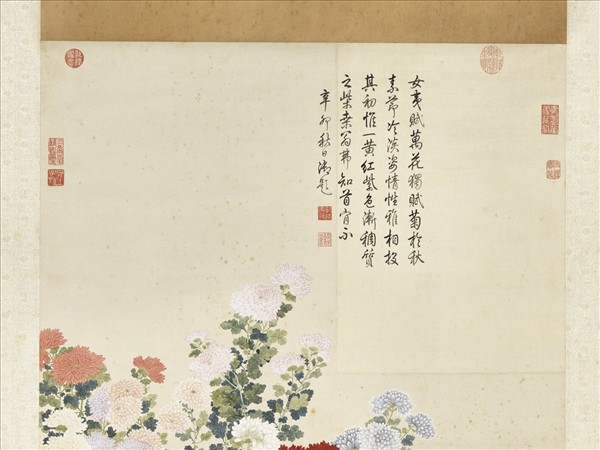 女夷賦萬花獨賦菊於秋
素節冷淡姿情性雅相投
其初惟一黃紅紫色漸稠質
之柴桑翁弗知首肯不
辛卯秋日御題